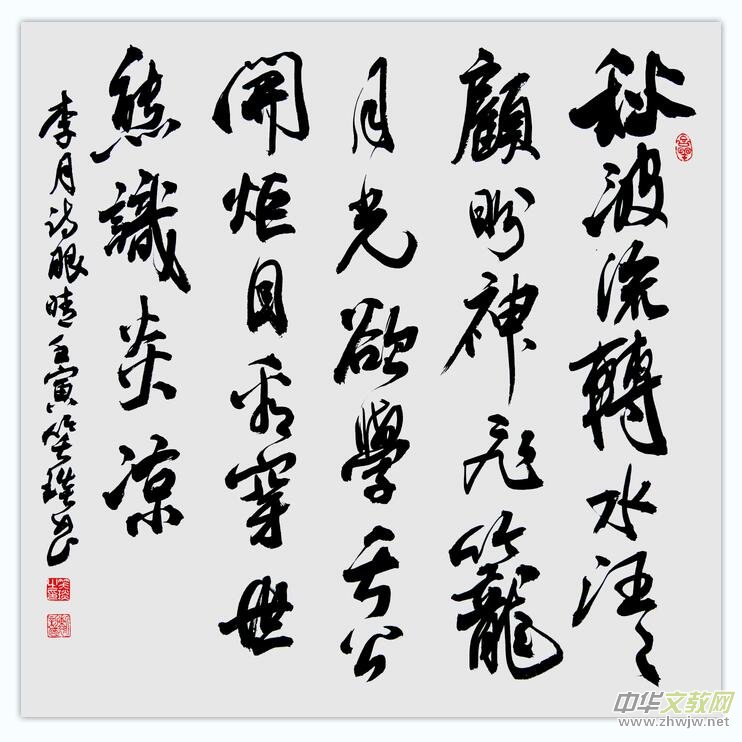 秋波流轉水汪〻
顧盼神飛籠
月光欲學天公
開炬目看穿世
態識炎涼
李月诗眼睛壬寅笑书
中华文教网
www.zhwjw.net